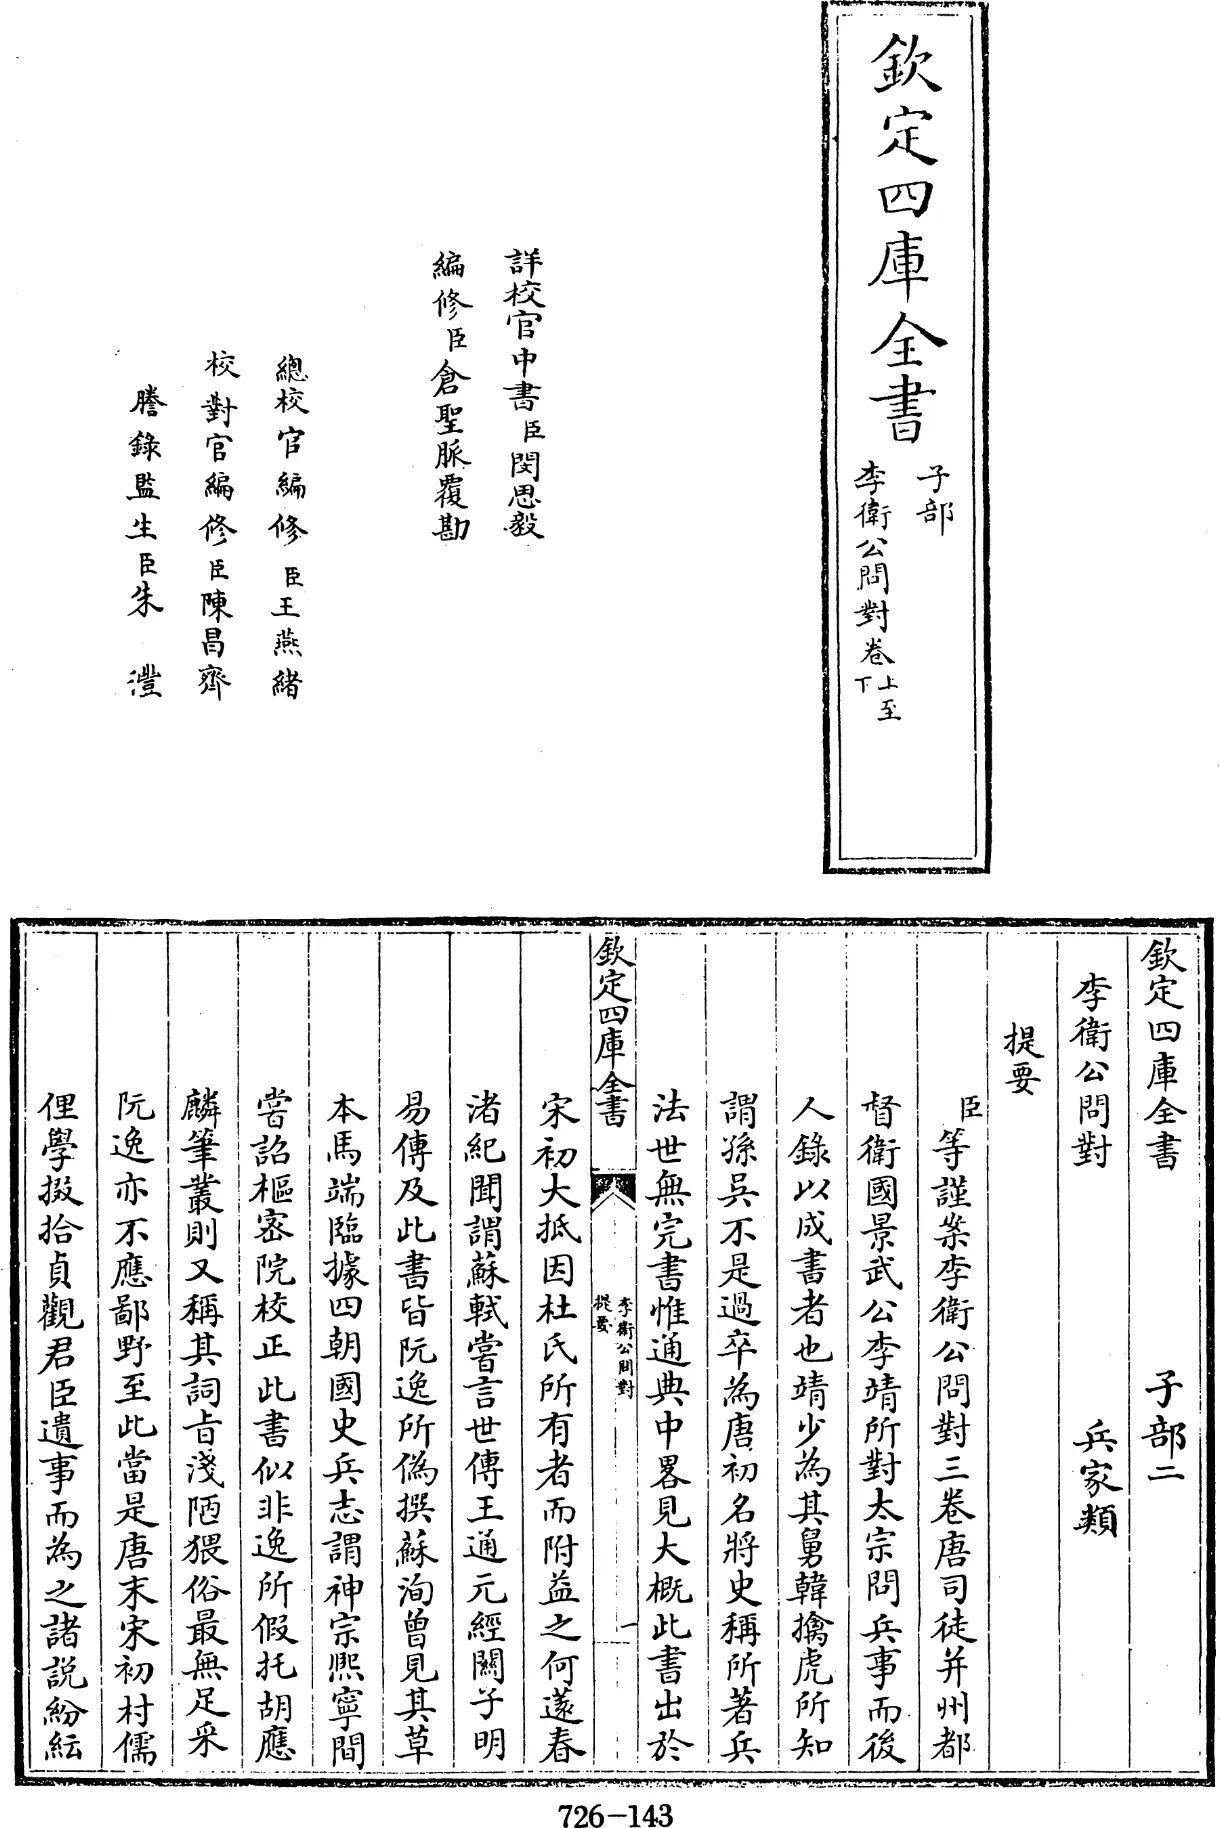 欽定四庫全書
子部
李衛公問對卷上至下
詳校官中書臣閔思毅
編修臣倉聖脈覆勘
總校官編修臣王燕緒
校對官編修臣陳昌齊
謄錄監生臣朱澧
欽定四庫全書 子部二
李衛公問對 兵家類
提要
臣等謹案李衛公問對三卷唐司徒并州都
督衛國景武公李靖所對太宗問兵事而後
人錄以成書者也靖少為其舅韓擒虎所知
謂孫吳不是過卒為唐初名將史稱所著兵
法世無完書惟通典中畧見大概此書出於
欽定四庫全書
李衛公問對
提要
一
宋初大抵因杜氏所有者而附益之何薳春
渚紀聞謂蘇軾嘗言世傳王通元經關子明
易傳及此書皆阮逸所偽撰蘇洵曾見其草
本馬端臨據四朝國史兵志謂神宗熙寧間
嘗詔樞密院校正此書似非逸所假托胡應
麟筆叢則又稱其詞旨淺陋猥俗最無足采
阮逸亦不應鄙野至此當是唐末宋初村儒
俚學掇拾貞觀君臣遺事而為之諸說紛紜
726-143